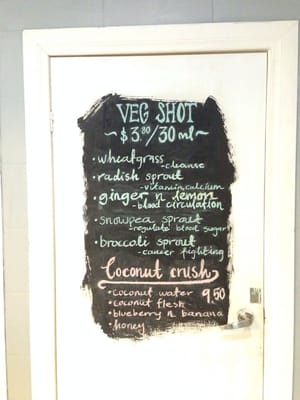 VEG SHOT
~ $3.80/30ml ~
• wheatgrass
- cleanse
• radish sprout
- vitamin, calcium
• ginger n lemon
- blood circulation
• snowpea sprout
- regulate blood sugar
• broccoli sprout
- cancer fighting
Coconut crush
• coconut water 9.50
• coconut flesh
• blueberry n banana
• honey